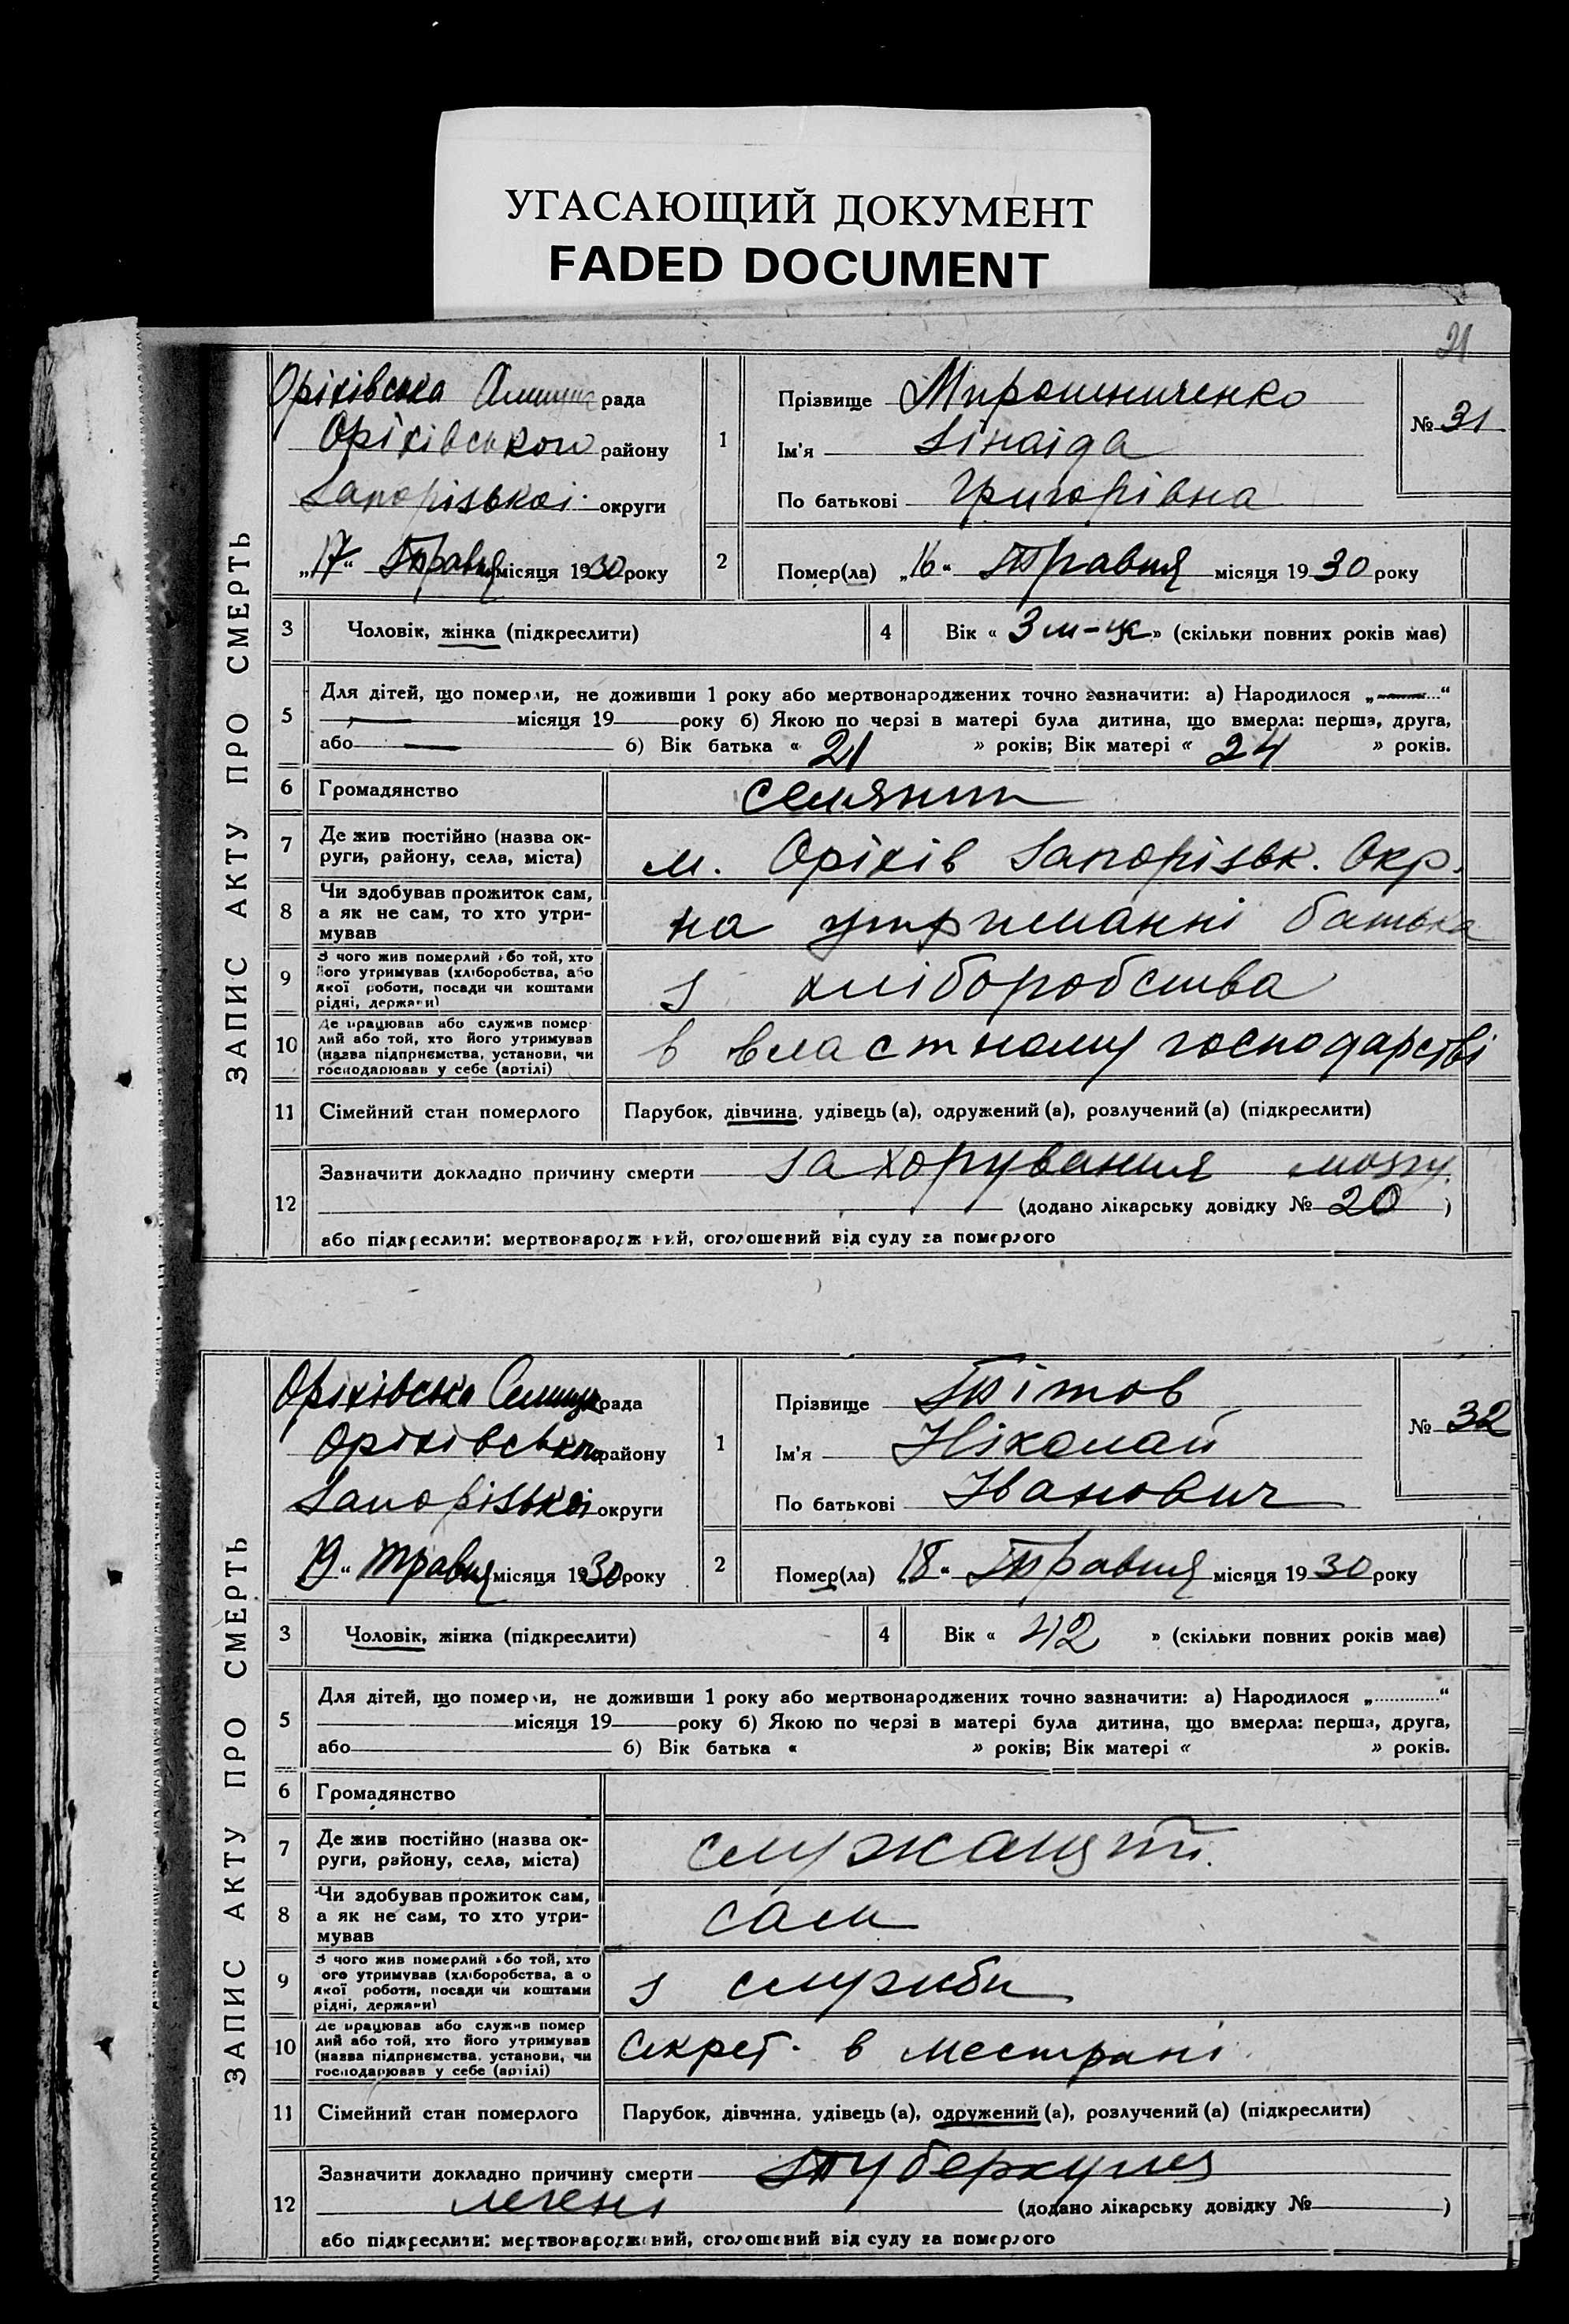 УГАСАЮЩИЙ ДОКУМЕНТ
FADED DOCUMENT
21
ЗАПИС АКТУ ПРО СМЕРТЬ
Оріхівська рада
Оріхівського району
Запорізькоі округи
„17“ Травня місяця 1930 року
1
Прізвище Мирошниченко
Ім'я Зінаіда
По батькові Григорівна
№ 31
2
Помер(ла) „16“ Травня місяця 1930 року
3 Чоловік, жінка (підкреслити)
4 Вік « 3 м-ця » (скільки повних років має)
5 Для дітей, що померли, не доживши 1 року або мертвонароджених точно зазначити: а) Народилося „—“
— місяця 19 року б) Якою по черзі в матері була дитина, що вмерла: перша, друга,
або — б) Вік батька « 21 » років; Вік матері « 24 » років.
6 Громадянство селянин
7 Де жив постійно (назва ок-
руги, району, села, міста) м. Оріхів Запорізьк. Окр.
8 Чи здобував прожиток сам,
а як не сам, то хто утри-
мував на утриманні батька
9 З чого жив померлий або той, хто
його утримував (хліборобства, або
якої роботи, посади чи коштами
рідні, держави) з хліборобства
10 Де працював або служив помер-
лий або той, хто його утримував
(назва підприємства, установи, чи
господарював у себе (артілі) в властному господарстві
11 Сімейний стан померлого Парубок, дівчина, удівець (а), одружений (а), розлучений (а) (підкреслити)
12 Зазначити докладно причину смерти захорування мозгу.
(додано лікарську довідку № 20 )
або підкреслити: мертвонароджений, оголошений від суду за померлого
ЗАПИС АКТУ ПРО СМЕРТЬ
Оріхівська Селищна рада
Оріхівського району
Запорізькоі округи
19“ травня місяця 1930 року
1
Прізвище Тітов
Ім'я Ніколай
По батькові Іванович
№ 32
2
Помер(ла) „18“ Травня місяця 1930 року
3 Чоловік, жінка (підкреслити)
4 Вік « 42 » (скільки повних років має)
5 Для дітей, що померли, не доживши 1 року або мертвонароджених точно зазначити: а) Народилося „.............“
місяця 19 року б) Якою по черзі в матері була дитина, що вмерла: перша, друга,
або б) Вік батька « » років; Вік матері « » років.
6 Громадянство
7 Де жив постійно (назва ок-
руги, району, села, міста) служащий.
8 Чи здобував прожиток сам,
а як не сам, то хто утри-
мував сам
9 З чого жив померлий або той, хто
його утримував (хліборобства, або
якої роботи, посади чи коштами
рідні, держави) з служби
10 Де працював або служив помер
лий або той, хто його утримував
(назва підприємства, установи, чи
господарював у себе (артілі) Секрет. в
11 Сімейний стан померлого Парубок, дівчина, удівець (а), одружений (а), розлучений (а) (підкреслити)
12 Зазначити докладно причину смерти Туберкульоз
легені (додано лікарську довідку № )
або підкреслити: мертвонароджений, оголошений від суду за померлого